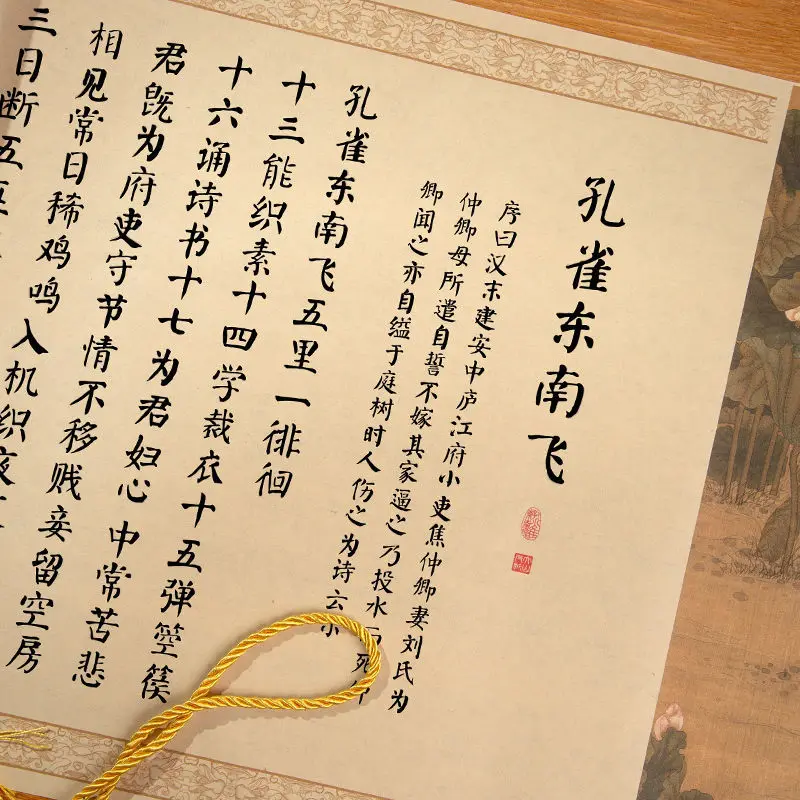 孔雀东南飞
序曰汉末建安中庐江府小吏焦仲卿妻刘氏为
仲卿母所遣自誓不嫁其家逼之乃投水死仲
卿闻之亦自缢于庭树时人伤之为诗云
孔雀东南飞五里一徘徊
十三能织素十四学裁衣十五弹箜篌
十六诵诗书十七为君妇心中常苦悲
君既为府吏守节情不移贱妾留空房
相见常日稀鸡鸣入机织夜
三日断五